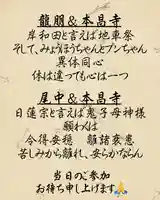 龍朋&本昌寺
岸和田と言えば地車祭
そして、みょうほうちゃんとプンちゃん
異体同心
体は違っても心は一つ
尾中&本昌寺
日蓮宗と言えば鬼子母神様
願わくは
令得安穏 離諸衰患
苦しみから離れ、安らかならん
当日のご参加
お待ち申し上げます🙏